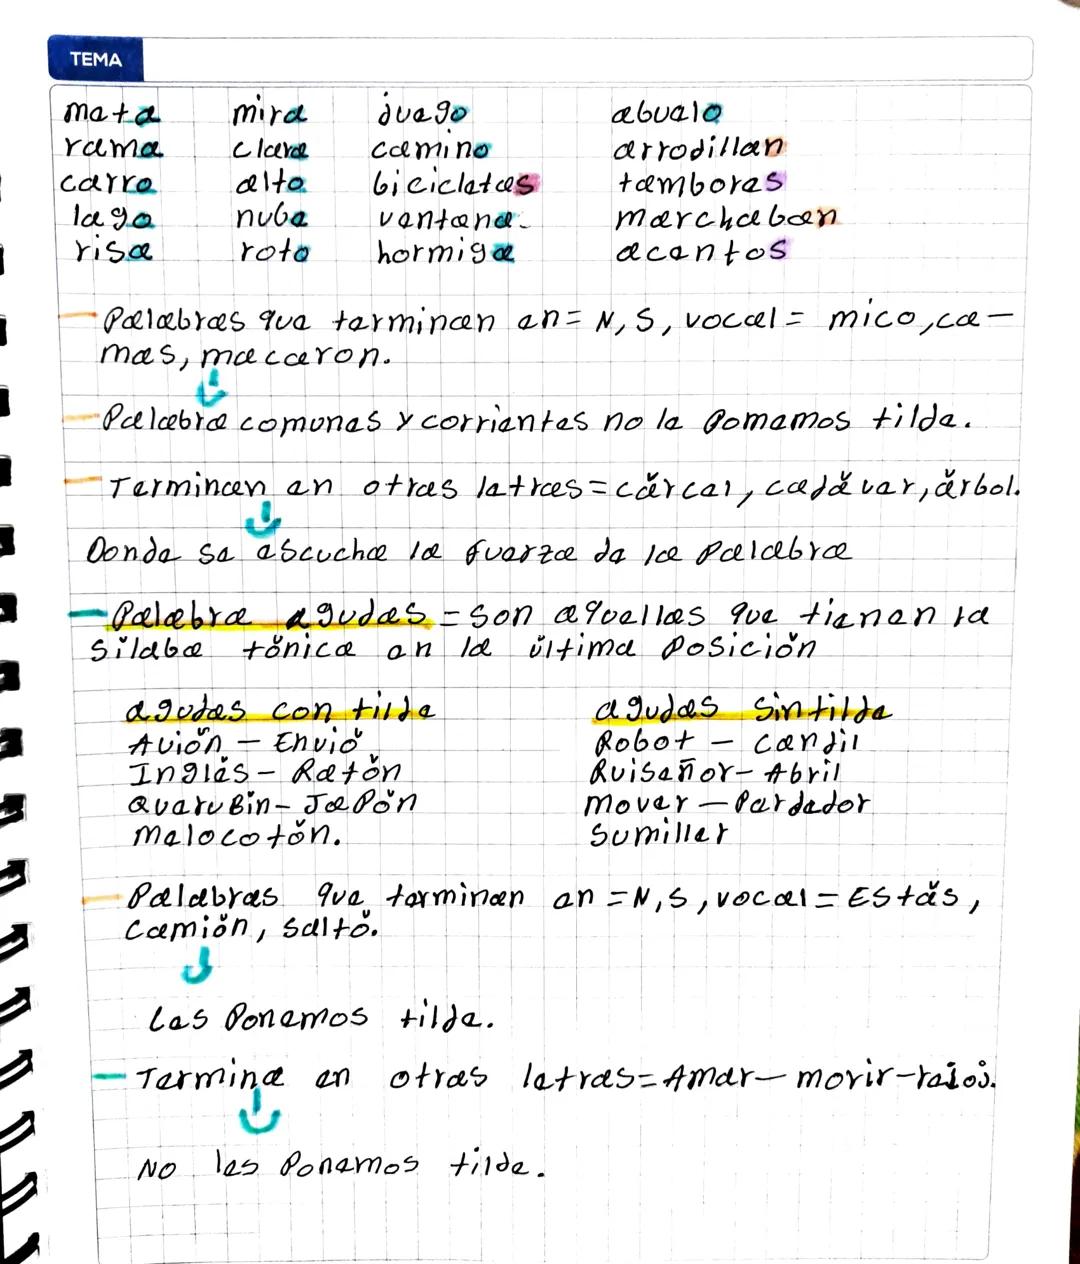 TEMA
mata mira juego abuelo
rama clara camino arrodillan
carro alto bicicletas tambores
lago nube ventana.
marchaban
risa roto hormiga acentos
- Palabras que terminan en= N, S, vocal= mico, ca-
mas, macaron.
- Palabra comunes y corrientes no le ponemos tilde.
- Terminan en otras letras= cárcel, cadáver, árbol.
Donde se escucha la fuerza de la palabra
- Palabra agudas = son aquellas que tienen la
sílaba tónica en la última posición
agudas con tilde agudas sin tilde
Avión - Envió Robot - Candil
Inglés - Ratón Ruiseñor - Abril
Querubín - Japón mover - Perdedor
melocotón. Sumiller
- Palabras que terminan en = N, S, vocal = Estás,
camión, saltó.
Las Ponemos tilde.
- Termina en otras letras= Amar - morir -
No les Ponemos tilde.